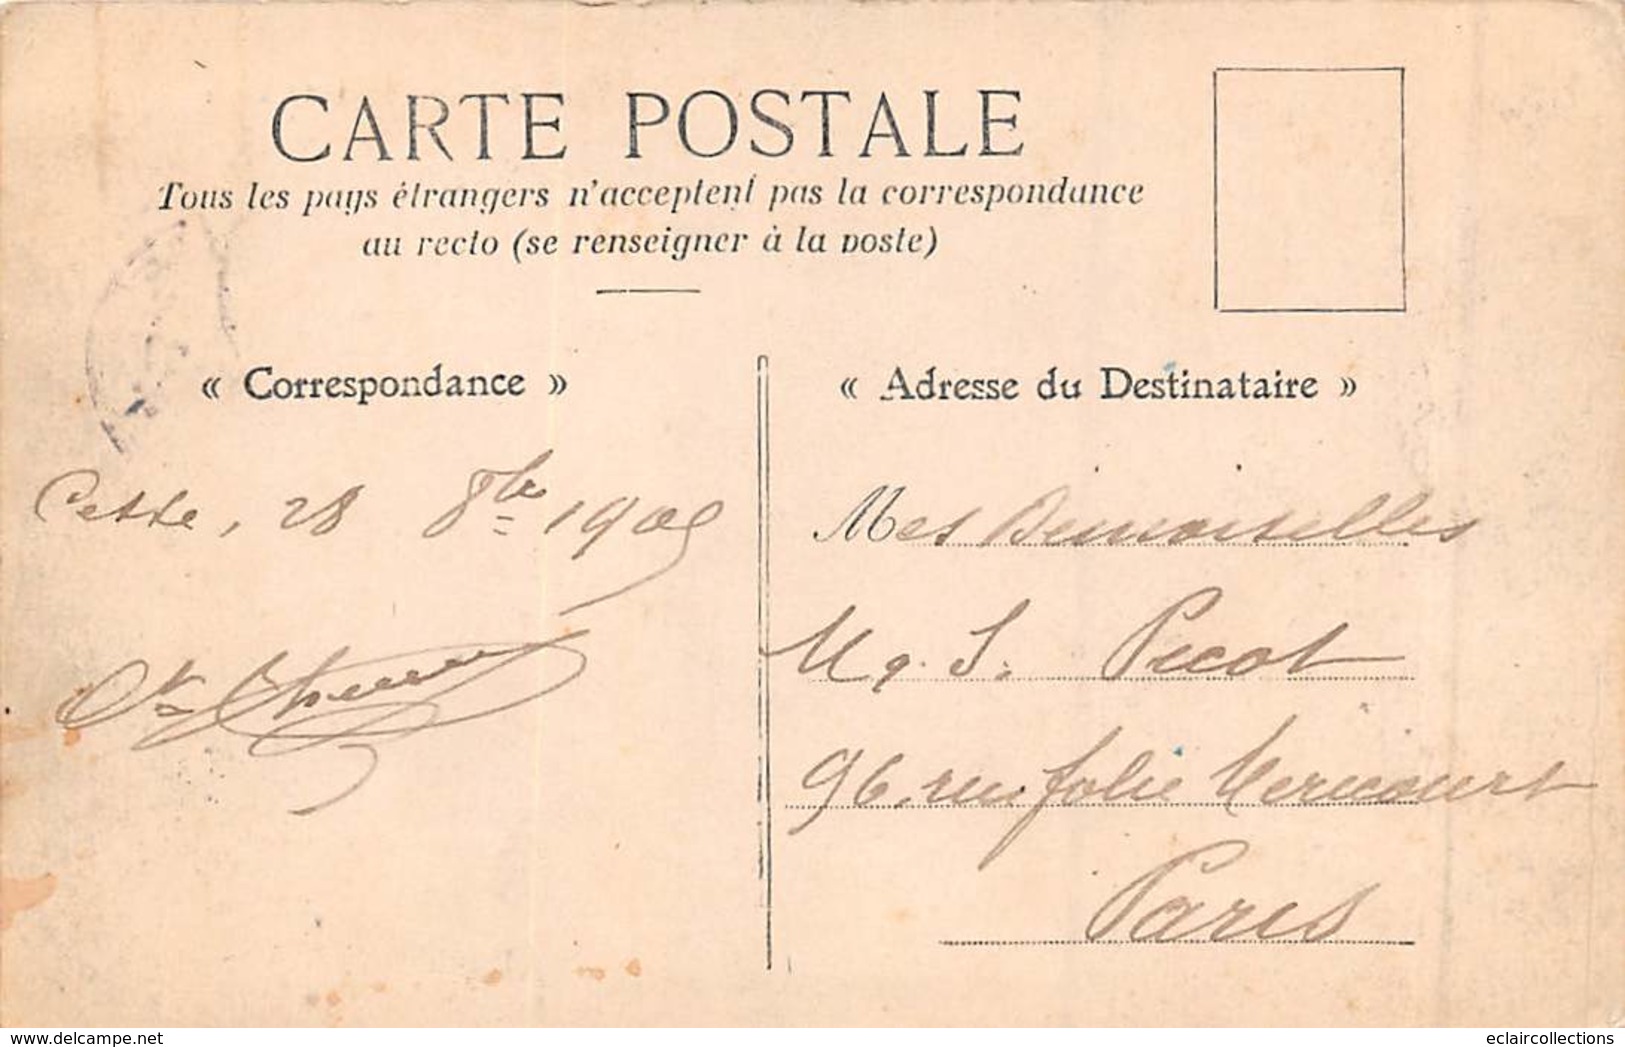 CARTE POSTALE
Tous les pays étrangers n'acceptent pas la correspondance
au recto (se renseigner à la poste)
« Correspondance »
« Adresse du Destinataire »
Cette, 28 8bre 1905
Mes Demoiselles
M & J. Picot
96, rue folie Mericourt
Paris
www.delcampe.net
eclaircollections